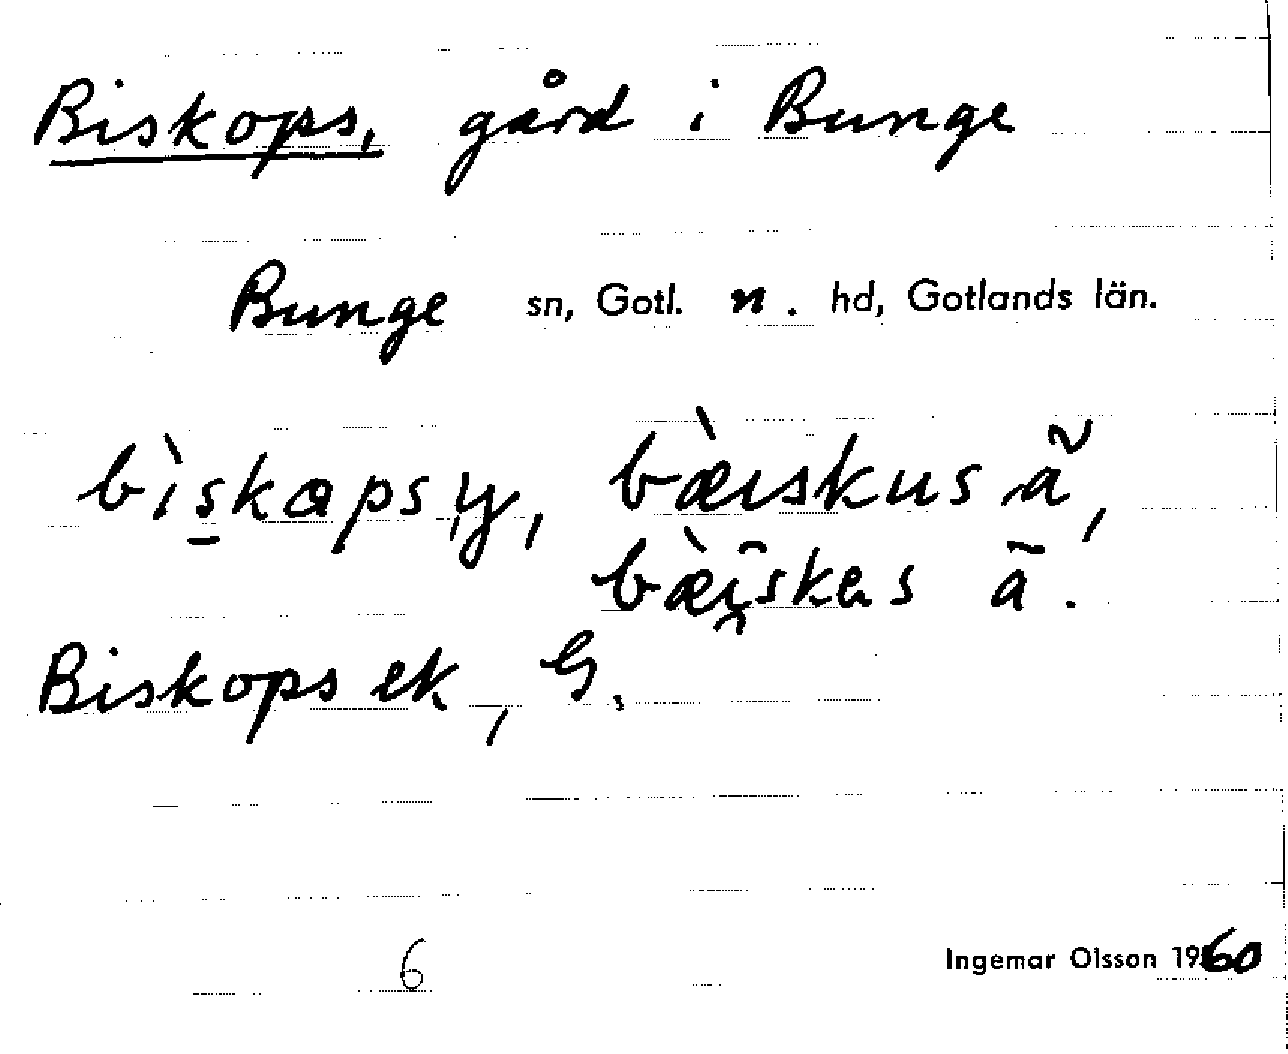 Biskops, gård i Bunge
Bunge sn, Gotl. n. hd, Gotlands län.
bìskapsy, bæ̀ıskus ã,
bæ̀i̯skəs ā.
Biskops ek, G.
6
Ingemar Olsson 1960